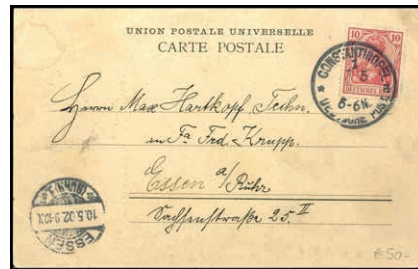 UNION POSTALE UNIVERSELLE
CARTE POSTALE
10 10
CONSTANTINOPEL
1
5
5-6N.
DEUTSCHE POST
Herrn Max Hartkopf, Techn.
in Fa Frd. Krupp.
Essen a/Ruhr
Sachsenstraße 25. II
ESSEN
10.5.02.9-10V.
(RUHR) 1.
€50-